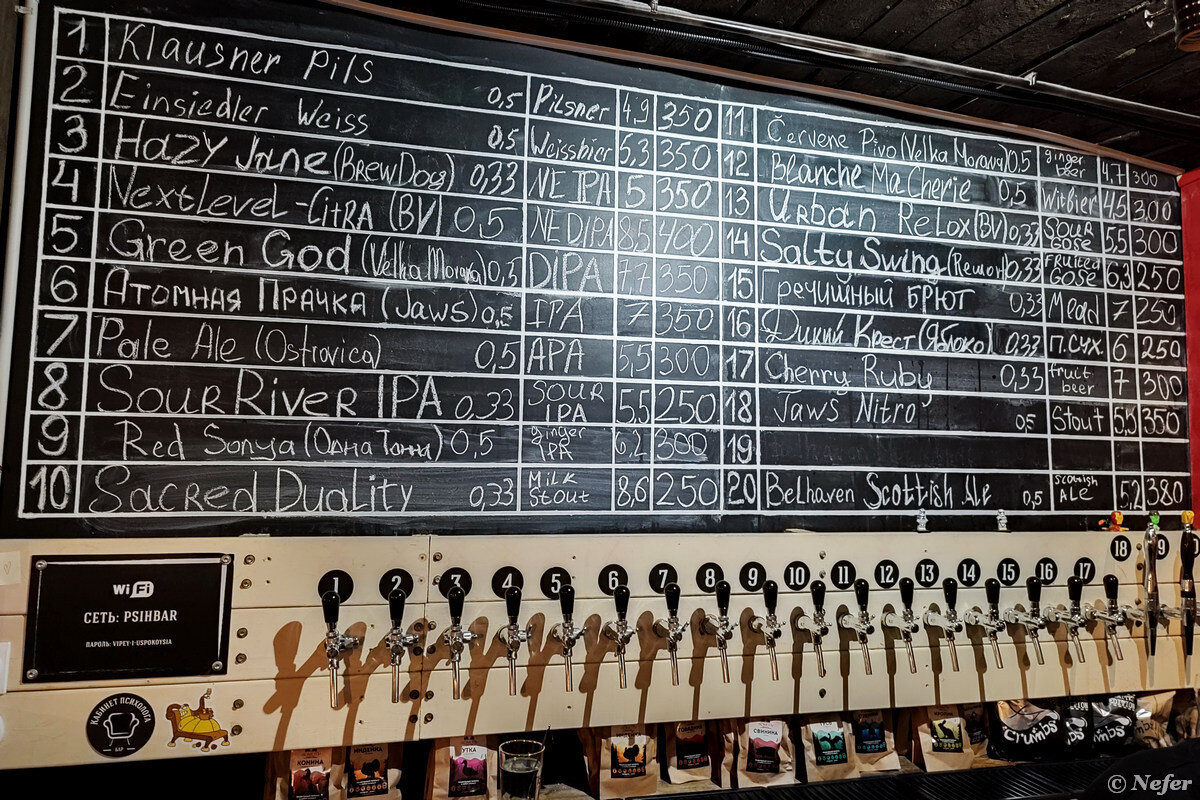 1 Klausner Pils 0,5 Pilsner 4,9 350
2 Einsiedler Weiss 0,5 Weissbier 5,3 350
3 Hazy Jane (BrewDog) 0,33 NE IPA 5 350
4 Next Level - Citra (BV) 0,5 NE DIPA 8,5 400
5 Green God (Velka Morava) 0,5 DIPA 7,7 350
6 Атомная Прачка (Jaws) 0,5 IPA 7 350
7 Pale Ale (Ostrovica) 0,5 APA 5,5 300
8 Sour River IPA 0,33 SOUR IPA 5,5 250
9 Red Sonya (Одна Тонна) 0,5 ginger IPA 6,2 300
10 Sacred Duality 0,33 Milk Stout 8,6 250
11 Červene Pivo (Velka Morava) 0,5 ginger beer 4,7 300
12 Blanche Ma Cherie 0,5 Witbier 4,5 300
13 Urban Relox (BV) 0,33 SOUR GOSE 5,5 300
14 Salty Swing (Rewort) 0,33 FRUITED GOSE 6,3 250
15 Гречишный БРЮТ 0,33 Mead 7 250
16 Дикий Крест (Яблоко) 0,33 П.СУХ 6 250
17 Cherry Ruby 0,33 fruit beer 7 300
18 Jaws Nitro 0,5 Stout 5,5 350
19
20 Belhaven Scottish Ale 0,5 scottish ALE 5,2 380
WiFi
СЕТЬ: PSIHBAR
ПАРОЛЬ: VIPEY-I-USPOKOYSIA
КАБИНЕТ ПСИХОЛОГА
БАР
1 2 3 4 5 6 7 8 9 10 11 12 13 14 15 16 17 18 9
КОНИНА
ИНДЕЙКА
УТКА
ГОВЯДИНА
СВИНИНА
crumbs
© Nefer